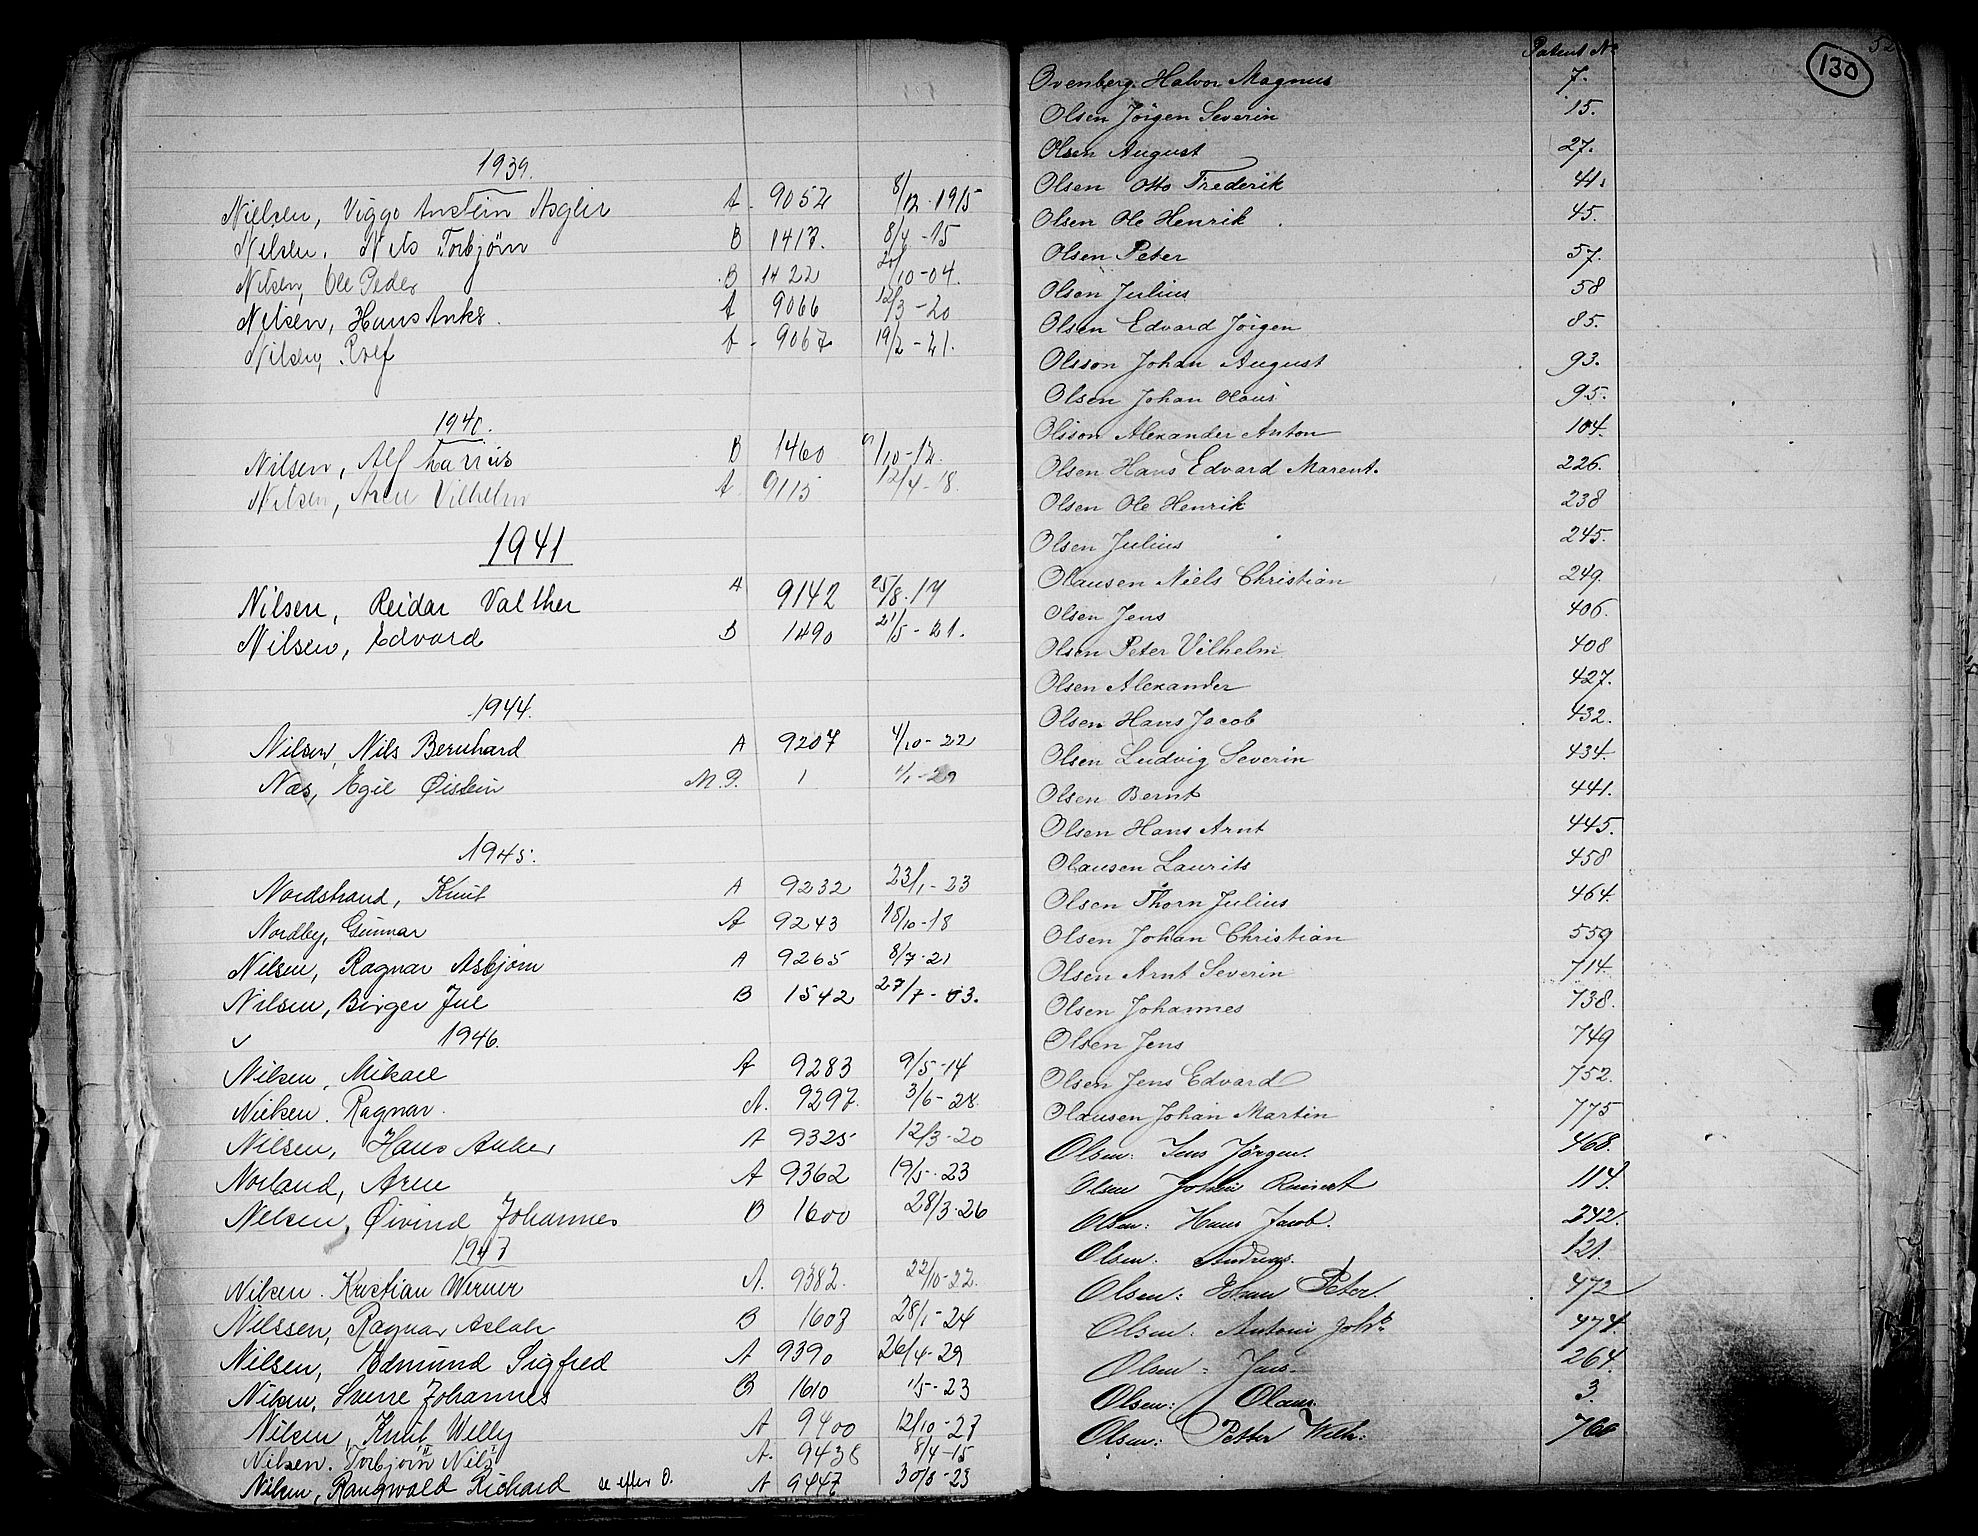 1939.
Nielsen, Viggo Anstein Asgeir A. 9054 8/12.1915
Nilsen, Nils Torbjörn B 1417. 8/4-15
Nilsen, Ole Peder B 1422 /10-04.
Nilsen, Hans Anks. A 9066 12/3-20
Nilsen, Rolf A- 9067 19/2-21.
1940.
Nilsen, Alf B 1460 /10-12.
Nilsen, Arne Vilhelm A 9115 12/4-18.
1941
Nilsen, Reidar Valther A 9142 25/8.19
Nilsen, Edvard B 1490 21/5-21.
1944.
Nilsen, Nils Bernhard A 9207 4/10-22
Næs, Egil Øistein M.P. 1 1/1-20
1945.
Nordstrand, Knut A 9232 23/1-23
Nordby, Gunnar A 9243 18/10-18
Nilsen, Ragnar Asbjørn A 9265 8/7-21
Nilsen, Birger Jul B 1542 27/7-03.
1946.
Nilsen, Mikael A 9283 9/5-14
Nielsen. Ragnar. A. 9297. 3/6-28.
Nilsen, Hans Anker A 9325 12/3-20
Norland, Arne A 9362 19/5-23
Nilsen, Øivind Johannes B 1600 28/3-26
1947
Nilsen. Kristian Werner A. 9382. 22/10-22.
Nilssen, Ragnar Aslak B 1603 28/1-24
Nilsen, Edmund Sigfred A 9390 26/4-29
Nilsen, Sverre Johannes B 1610 1/5-23
Nilsen, Knut Willy A 9400 12/10-27
Nilsen. Torbjörn Nils A. 9438 8/4-15
Nilsen, Rangwald Richard se efter O. A 9447 30/8-23
130
Patent No
Ovenberg Halvor Magnus 7.
Olsen Jörgen Severin 15.
Olsen August 27.
Olsen Otto Frederik 41.
Olsen Ole Henrik. 45.
Olsen Peter 57.
Olsen Julius 58
Olsen Edvard Jörgen 85.
Olsson Johan August 93.
Olsen Johan Olaus 95.
Olsson Alexander Anton 104.
Olsen Hans Edvard Marent. 226.
Olsen Ole Henrik 238
Olsen Julius 245.
Olausen Niels Christian 249.
Olsen Jens 406.
Olsen Peter Vilhelm 408
Olsen Alexander 427.
Olsen Hans Jacob 432.
Olsen Ludvig Severin 434.
Olsen Bernt 441.
Olsen Hans Arnt 445.
Olausen Laurits 458
Olsen Thorn Julius 464.
Olsen Johan Christian 559
Olsen Arnt Severin 714.
Olsen Johannes 738.
Olsen Jens 749
Olsen Jens Edvard 752.
Olausen Johan Martin 775
Olsen: Jens Jörgen. 468.
Olsen Johan Reinert 114.
Olsen: Hans Jacob. 242.
Olsen: Andreas. 121
Olsen: Johan Peter. 472
Olsen: Anton Joh. 474.
Olsen: Jens. 264.
Olsen: Olaus. 3.
Olsen: Petter Wilh: 766